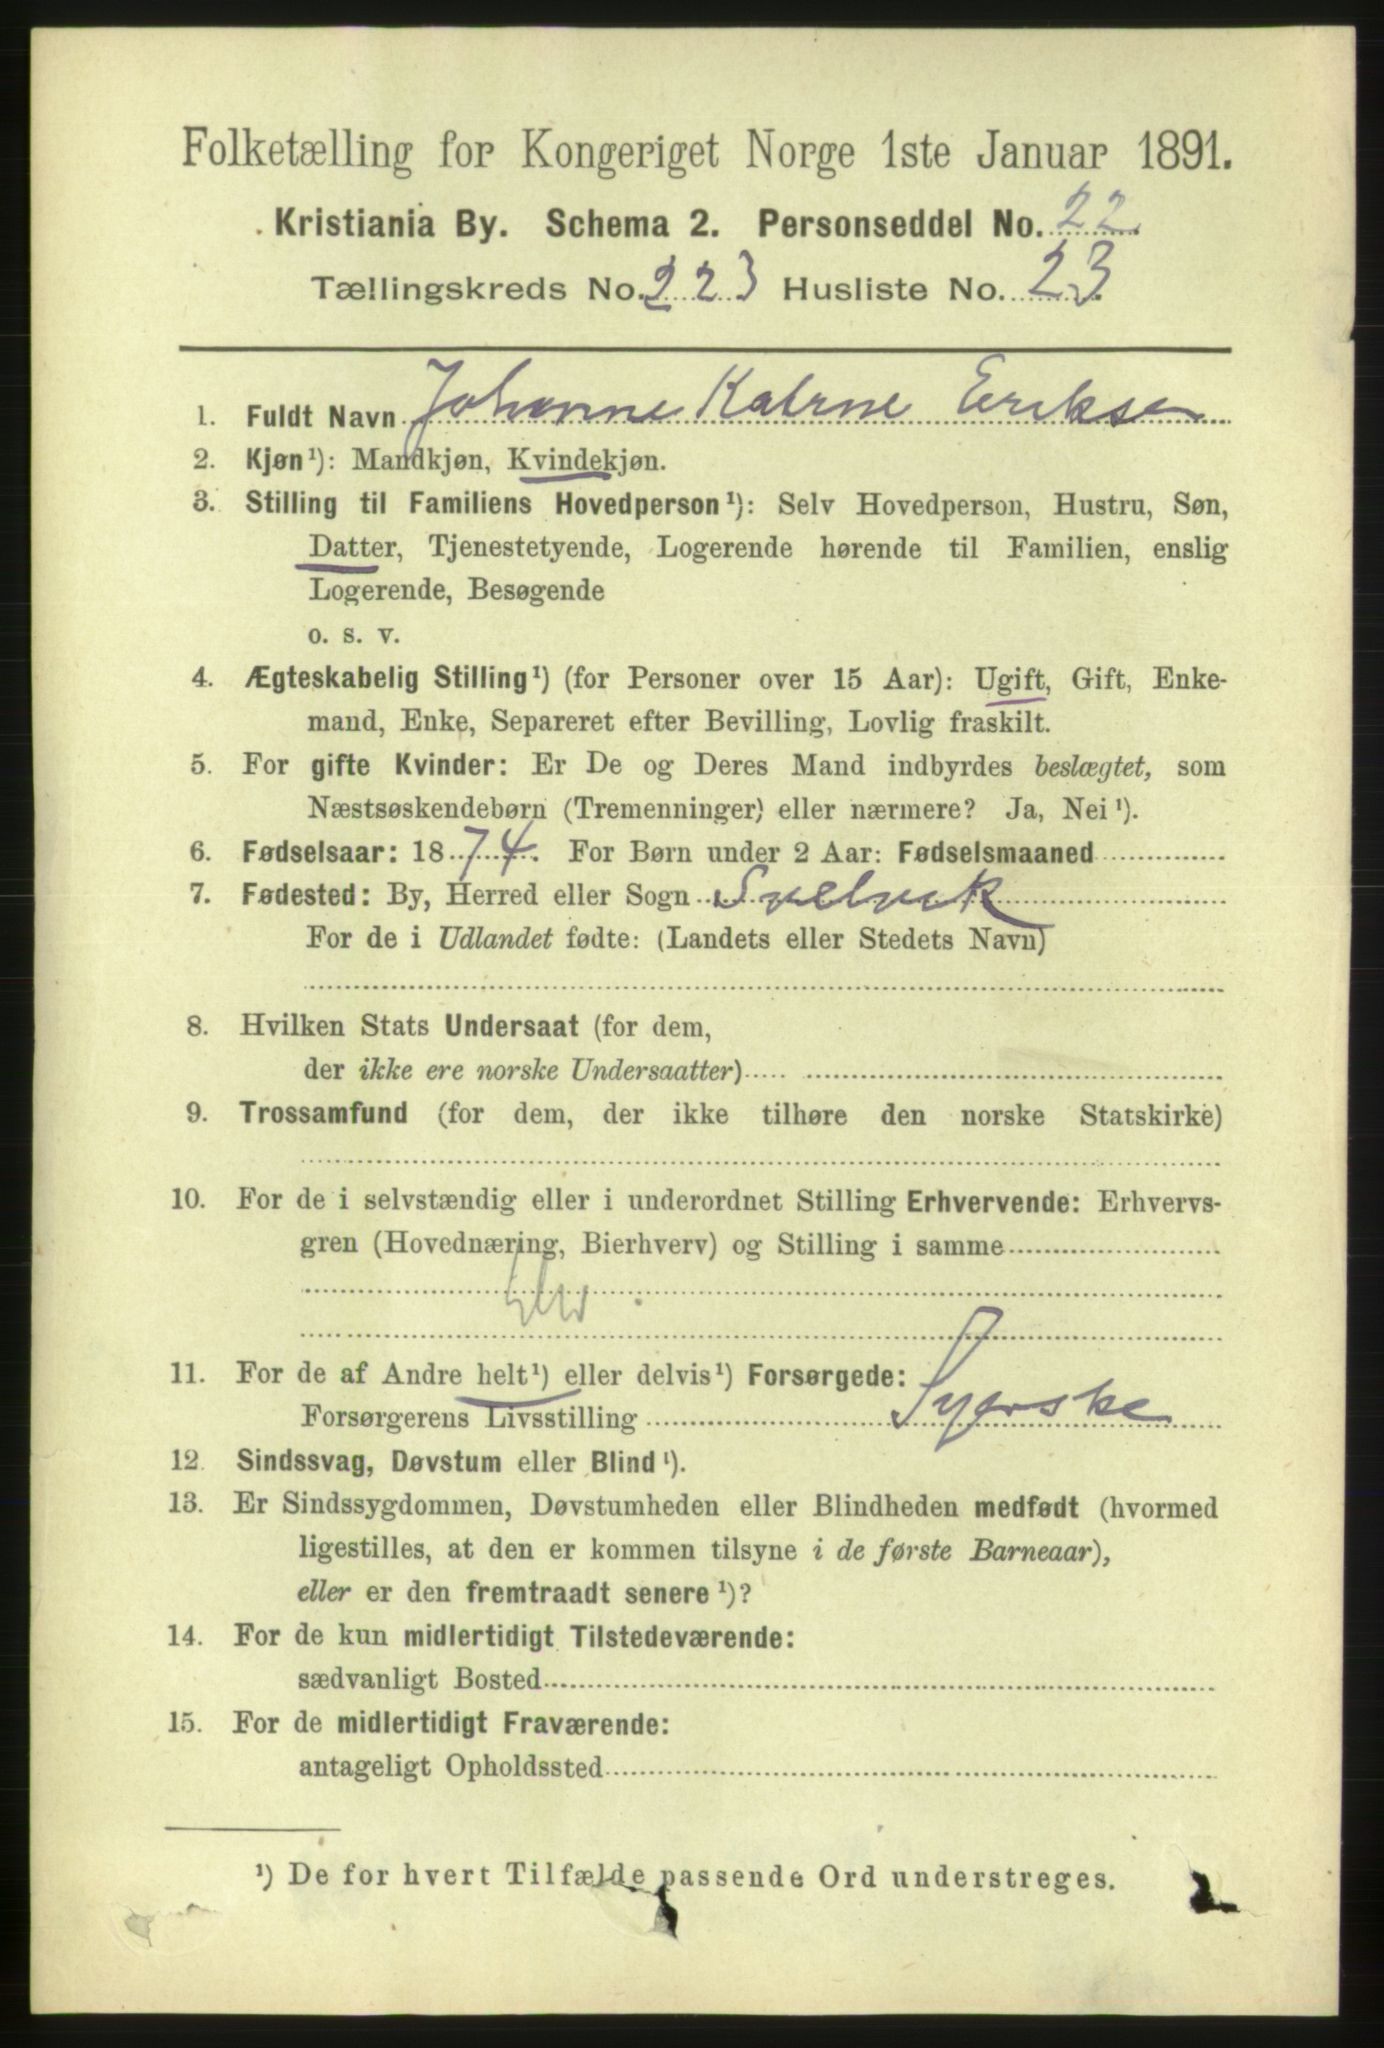 Folketælling for Kongeriget Norge 1ste Januar 1891.
Kristiania By. Schema 2. Personseddel No. 22
Tællingskreds No. 223 Husliste No. 23
1. Fuldt Navn Johanne Katrne Eriksen
2. Kjøn¹): Mandkjøn, Kvindekjøn.
3. Stilling til Familiens Hovedperson¹): Selv Hovedperson, Hustru, Søn,
Datter, Tjenestetyende, Logerende hørende til Familien, enslig
Logerende, Besøgende
o. s. v.
4. Ægteskabelig Stilling¹) (for Personer over 15 Aar): Ugift, Gift, Enke-
mand, Enke, Separeret efter Bevilling, Lovlig fraskilt.
5. For gifte Kvinder: Er De og Deres Mand indbyrdes beslægtet, som
Næstsøskendebørn (Tremenninger) eller nærmere? Ja, Nei¹).
6. Fødselsaar: 1874. For Børn under 2 Aar: Fødselsmaaned
7. Fødested: By, Herred eller Sogn Svelvik
For de i Udlandet fødte: (Landets eller Stedets Navn)
8. Hvilken Stats Undersaat (for dem,
der ikke ere norske Undersaatter)
9. Trossamfund (for dem, der ikke tilhøre den norske Statskirke)
10. For de i selvstændig eller i underordnet Stilling Erhvervende: Erhvervs-
gren (Hovednæring, Bierhverv) og Stilling i samme
11. For de af Andre helt¹) eller delvis¹) Forsørgede:
Forsørgerens Livsstilling Syerske
12. Sindssvag, Døvstum eller Blind¹).
13. Er Sindssygdommen, Døvstumheden eller Blindheden medfødt (hvormed
ligestilles, at den er kommen tilsyne i de første Barneaar),
eller er den fremtraadt senere¹)?
14. For de kun midlertidigt Tilstedeværende:
sædvanligt Bosted
15. For de midlertidigt Fraværende:
antageligt Opholdssted
¹) De for hvert Tilfælde passende Ord understreges.